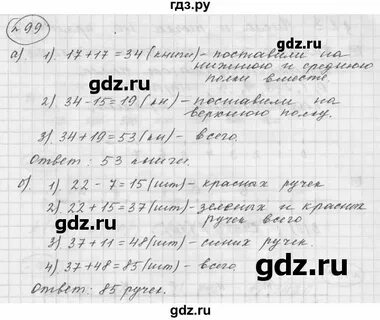 гдз.ру
№99
а) 1). 17+17=34 (книги) - поставили на
нижнюю и среднюю
полки вместе.
2) 34-15=19 (кн) - поставили на
верхнюю полку.
3) 34+19=53 (кн) - всего.
Ответ: 53 книги.
б) 1) 22-7=15 (шт) - красных ручек
2) 22+15=37 (шт) - зеленых и красных
ручек всего
3) 37+11=48 (шт) - синих ручек.
4) 37+48=85 (шт) - всего.
Ответ: 85 ручек.
gdz.ru
gdz.ru
gdz.ru
gdz.ru